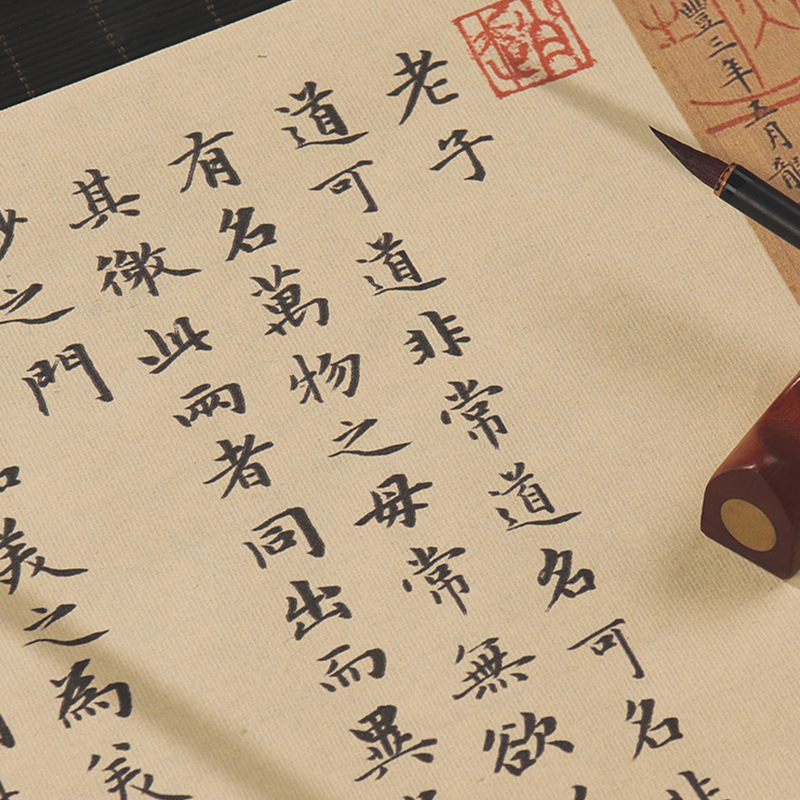 豐三年五月龍
老子
道可道非常道名可名非
有名萬物之母常無欲
其徼此兩者同出而異
妙之門
知美之為美